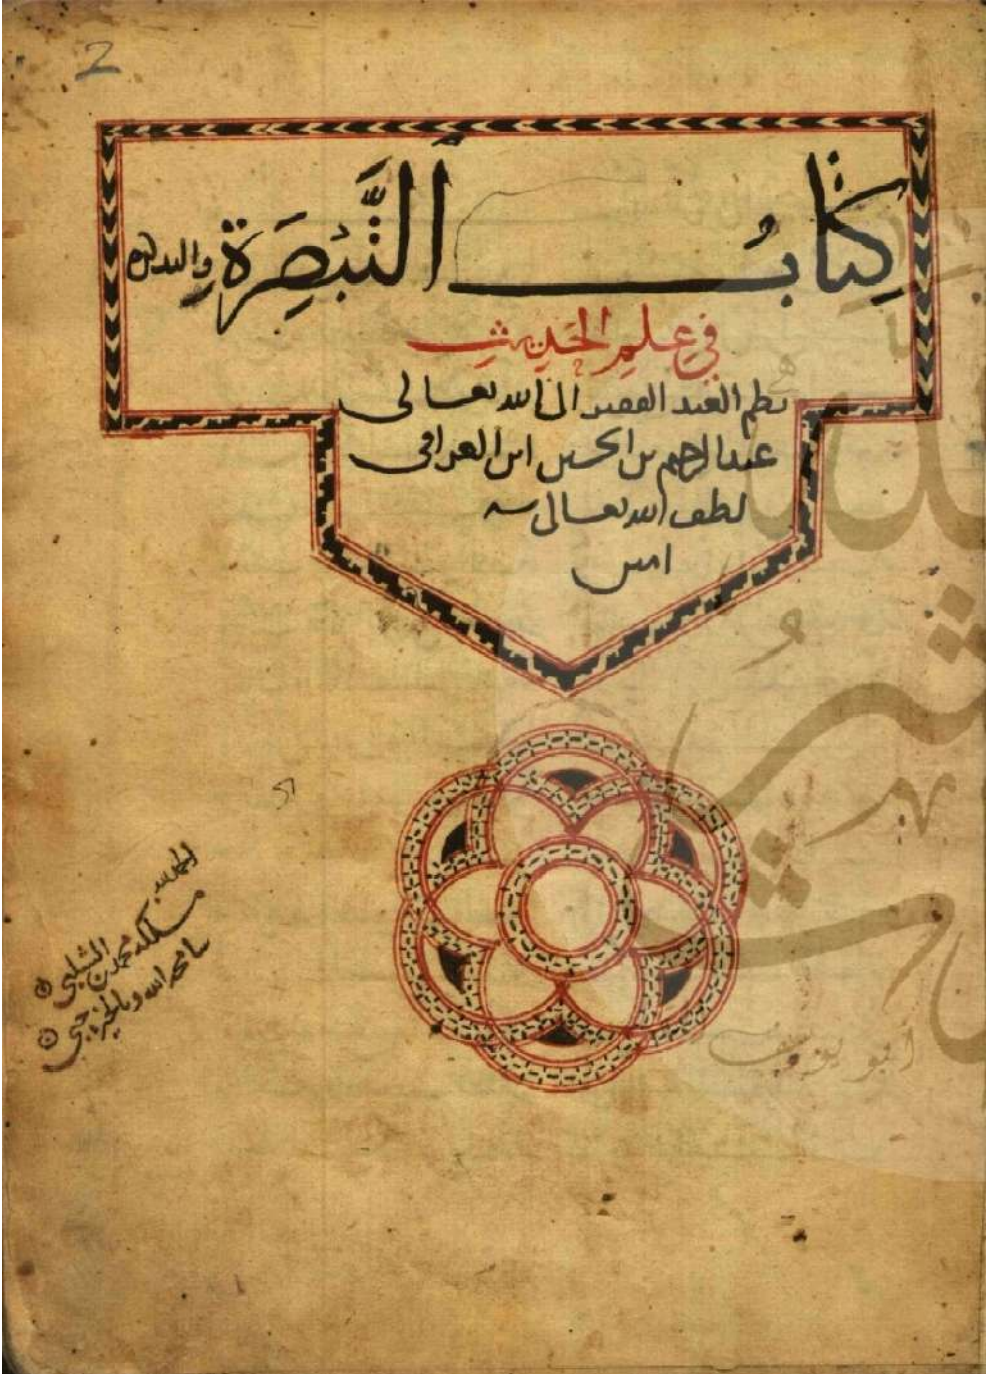 2
كِتَابُ التَّبْصِرَة والتذكره
في عِلمِ الحَدِيثِ
نظم العبد الفقير الى الله تعالى
عبد الرحيم بن الحسين ابن العراقي
لطف الله تعالى به
امين
الحمد لله
ملكه محمد بن الشلبي
سامحه الله
ابو يوسف